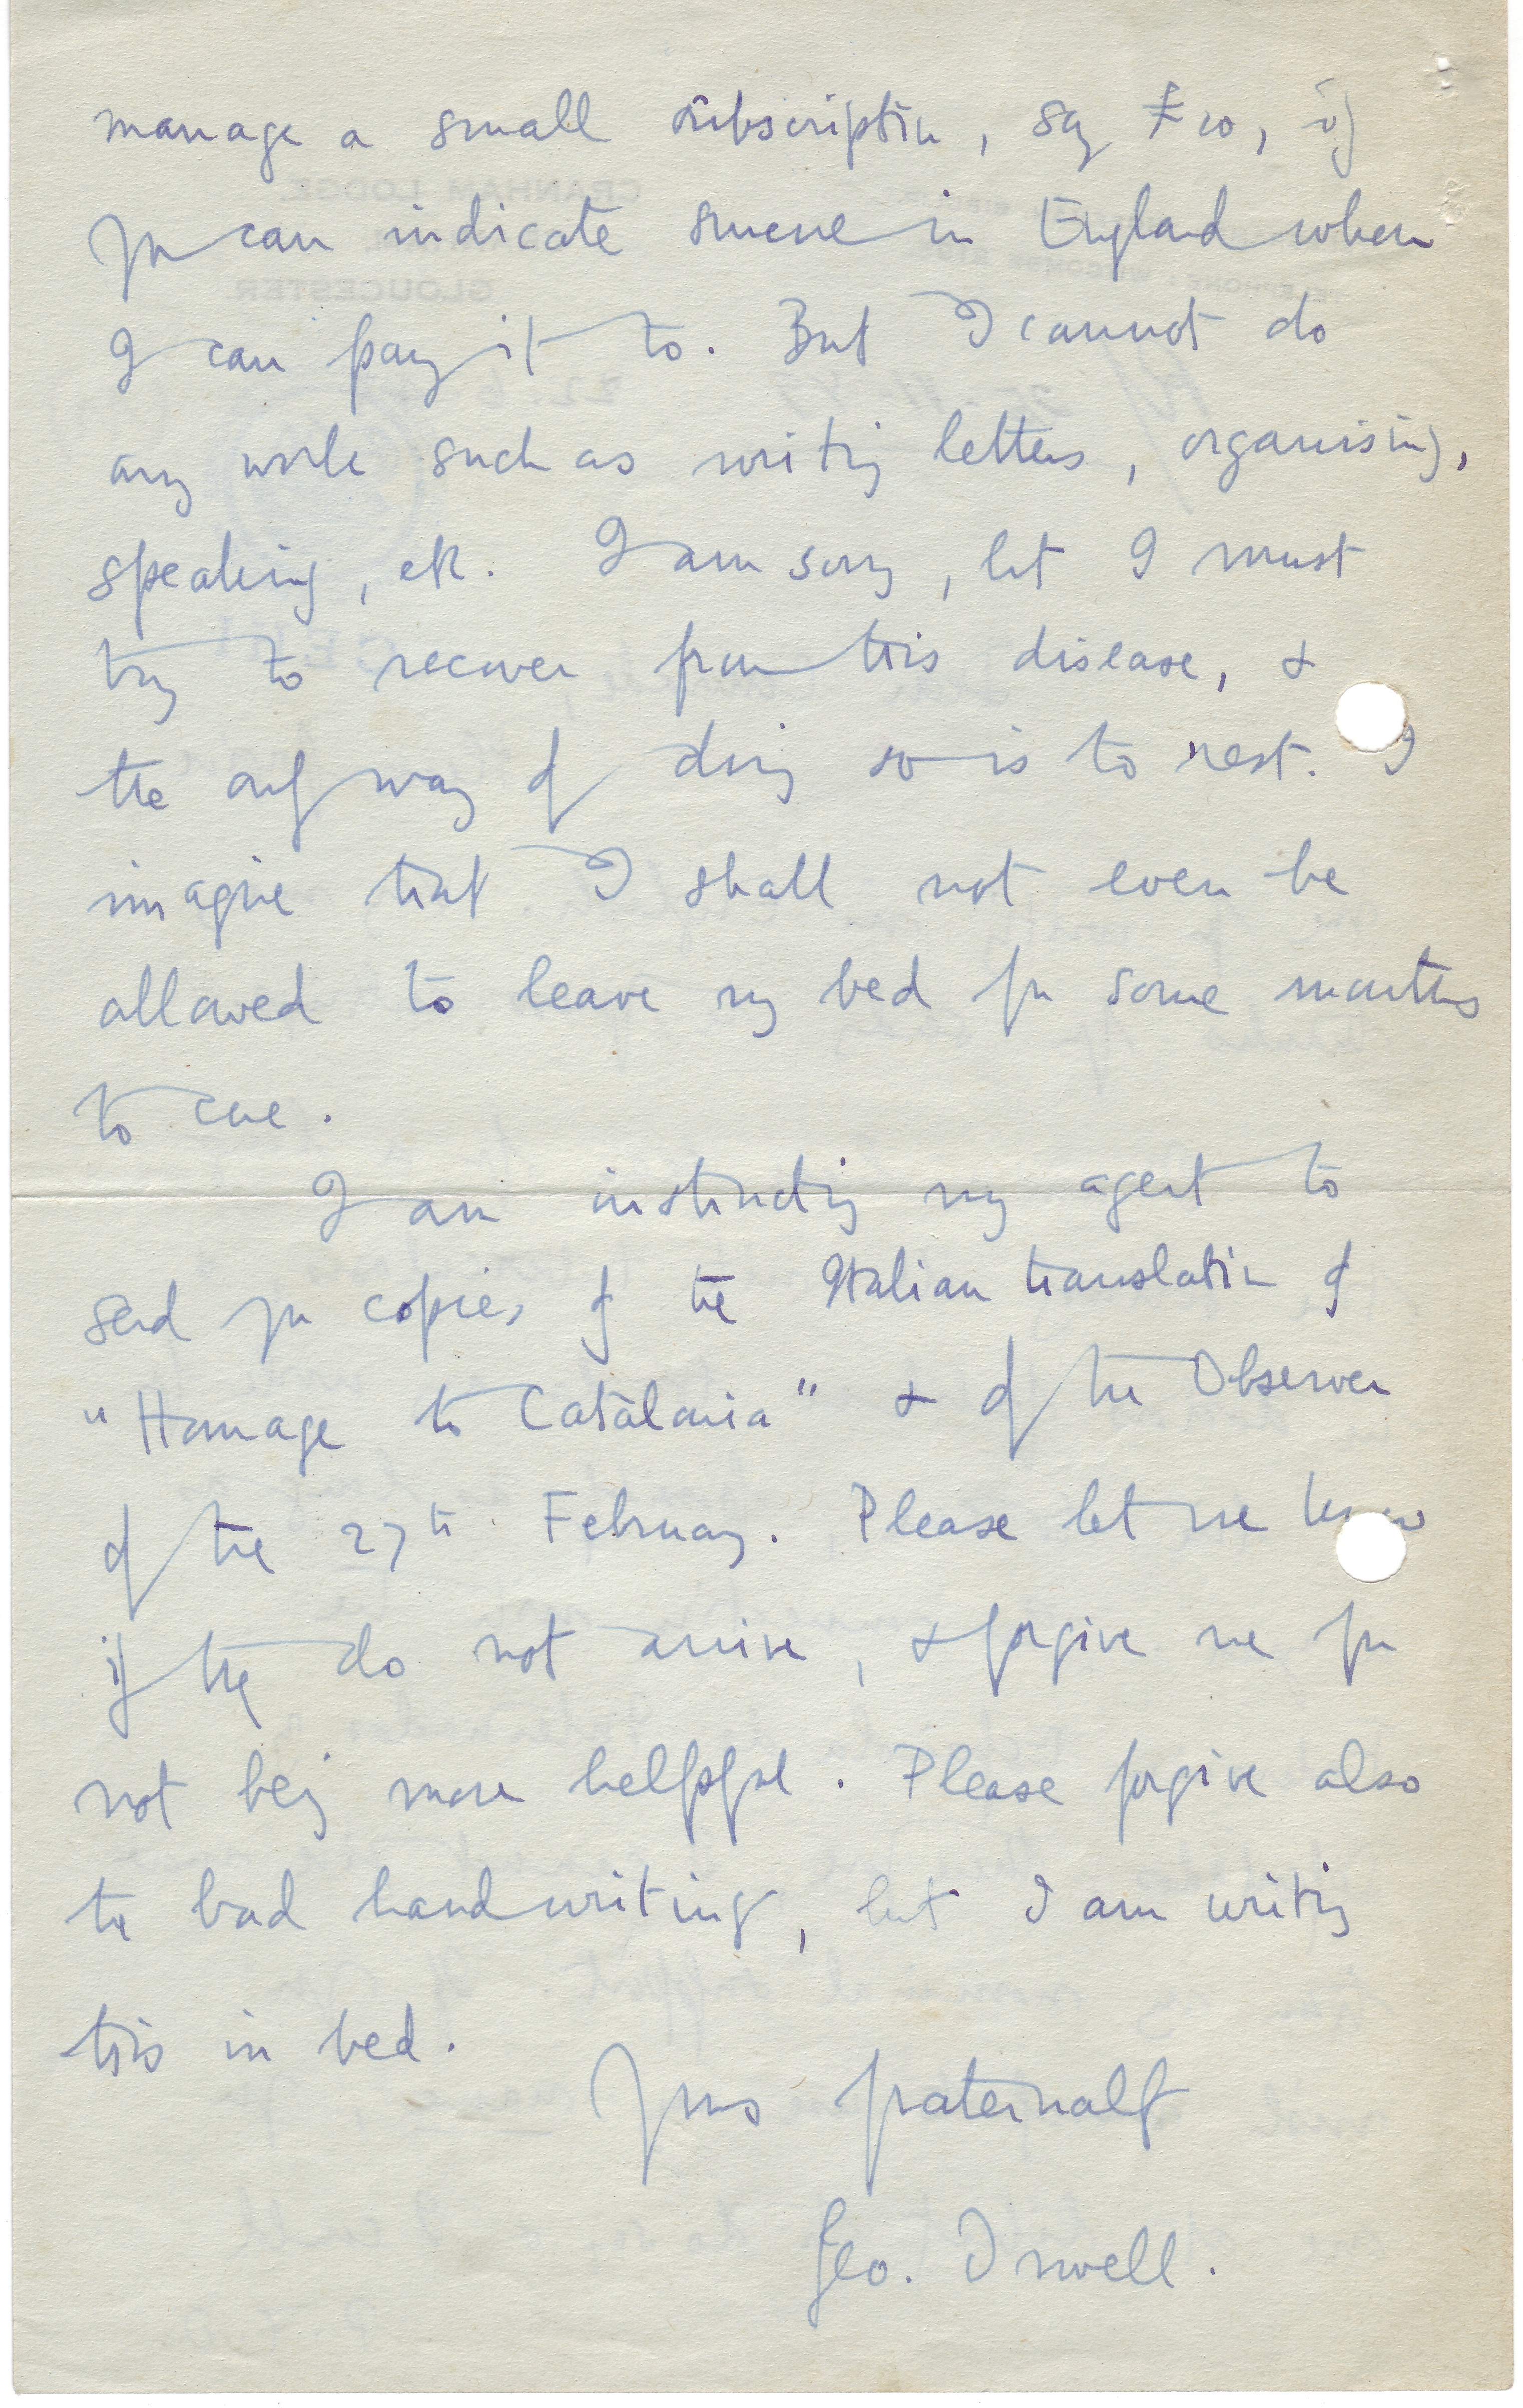 manage a small subscription, say £10, if
you can indicate someone in England whom
I can pay it to. But I cannot do
any work such as writing letters, organising,
speaking, etc. I am sorry, but I must
try to recover from this disease, &
the only way of doing so is to rest. I
imagine that I shall not even be
allowed to leave my bed for some months
to come.
I am instructing my agent to
send you copies of the Italian translation of
"Homage to Catalonia" & of the Observer
of the 27th February. Please let me know
if they do not arrive, & forgive me for
not being more helpful. Please forgive also
the bad handwriting, but I am writing
this in bed.
Yours fraternally
Geo. Orwell.
CRANHAM LODGE,
GLOUCESTER.